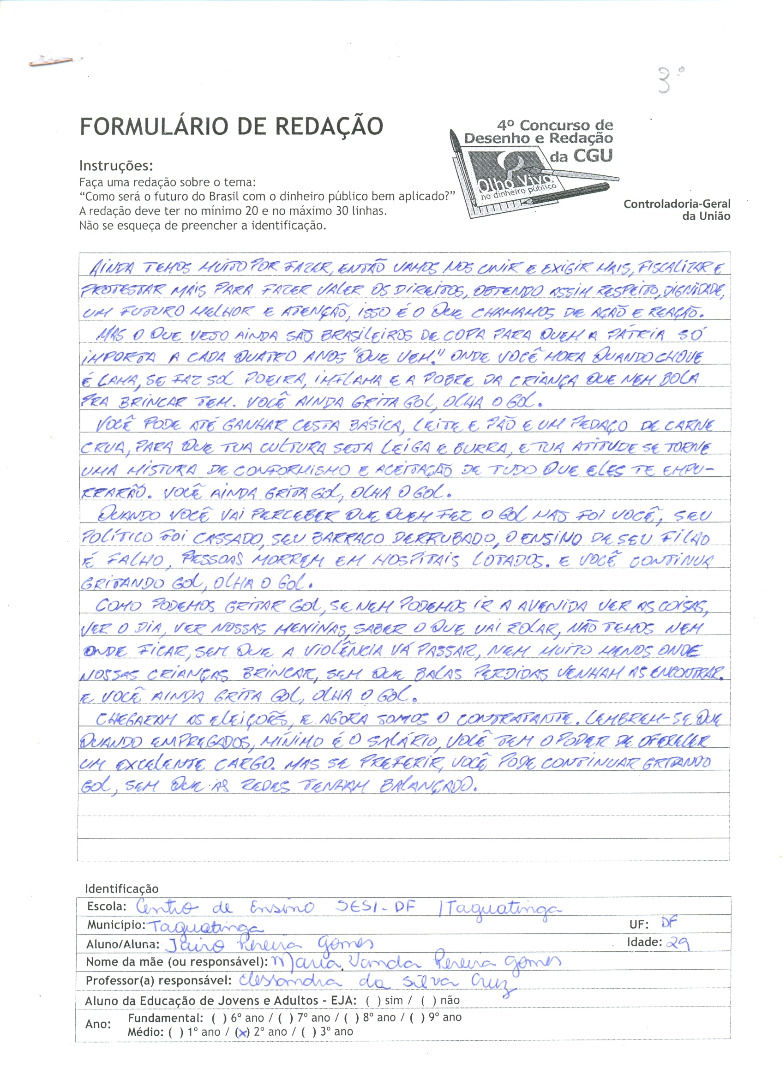 3º
FORMULÁRIO DE REDAÇÃO
4º Concurso de
Desenho e Redação
da CGU
Olho Vivo
no dinheiro público
Controladoria-Geral
da União
Instruções:
Faça uma redação sobre o tema:
“Como será o futuro do Brasil com o dinheiro público bem aplicado?”
A redação deve ter no mínimo 20 e no máximo 30 linhas.
Não se esqueça de preencher a identificação.
AINDA TEMOS MUITO POR FAZER, ENTÃO VAMOS NOS UNIR E EXIGIR MAIS, FISCALIZAR E
PROTESTAR MAIS PARA FAZER VALER OS DIREITOS, OBTENDO ASSIM RESPEITO, DIGNIDADE,
UM FUTURO MELHOR E ATENÇÃO, ISSO É O QUE CHAMAMOS DE AÇÃO E REAÇÃO.
MAS O QUE VEJO AINDA SÃO BRASILEIROS DE COPA PARA QUEM A PÁTRIA SÓ
IMPORTA A CADA QUATRO ANOS "QUE VEM". ONDE VOCÊ MORA QUANDO CHOVE
É LAMA, SE FAZ SOL POEIRA, INFLAMA E A POBRE DA CRIANÇA QUE NEM BOLA
PRA BRINCAR TEM. VOCÊ AINDA GRITA GOL, OLHA O GOL.
VOCÊ PODE ATÉ GANHAR CESTA BÁSICA, LEITE E PÃO E UM PEDAÇO DE CARNE
CRUA, PARA QUE TUA CULTURA SEJA LEIGA E BURRA, E TUA ATITUDE SE TORNE
UMA MISTURA DE CONFORMISMO E ACEITAÇÃO DE TUDO QUE ELES TE EMPU-
RRARÃO. VOCÊ AINDA GRITA GOL, OLHA O GOL.
QUANDO VOCÊ VAI PERCEBER QUE QUEM FEZ O GOL NÃO FOI VOCÊ, SEU
POLÍTICO FOI CASSADO, SEU BARRACO DERRUBADO, O ENSINO DE SEU FILHO
É FALHO, PESSOAS MORREM EM HOSPITAIS LOTADOS. E VOCÊ CONTINUA
GRITANDO GOL, OLHA O GOL.
COMO PODEMOS GRITAR GOL, SE NEM PODEMOS IR A AVENIDA VER AS COISAS,
VER O DIA, VER NOSSAS MENINAS, SABER O QUE VAI ROLAR, NÃO TEMOS NEM
ONDE FICAR, SEM QUE A VIOLÊNCIA VÁ PASSAR, NEM MUITO MENOS ONDE
NOSSAS CRIANÇAS BRINCAR, SEM QUE BALAS PERDIDAS VENHAM AS ENCONTRAR.
E VOCÊ AINDA GRITA GOL, OLHA O GOL.
CHEGARAM AS ELEIÇÕES, E AGORA SOMOS O CONTRATANTE. LEMBREM-SE QUE
QUANDO EMPREGADOS, MÍNIMO É O SALÁRIO, VOCÊ TEM O PODER DE OFERECER
UM EXCELENTE CARGO. MAS SE PREFERIR, VOCÊ PODE CONTINUAR GRITANDO
GOL, SEM QUE AS REDES TENHAM BALANÇADO.
Identificação
Escola: Centro de Ensino SESI-DF / Taguatinga
Município: Taguatinga UF: DF
Aluno/Aluna: Jairo Pereira Gomes Idade: 29
Nome da mãe (ou responsável): Maria Vanda Pereira Gomes
Professor(a) responsável: Clessandra da Silva Cruz
Aluno da Educação de Jovens e Adultos - EJA: ( ) sim / ( ) não
Ano: Fundamental: ( ) 6º ano / ( ) 7º ano / ( ) 8º ano / ( ) 9º ano
Médio: ( ) 1º ano / (x) 2º ano / ( ) 3º ano